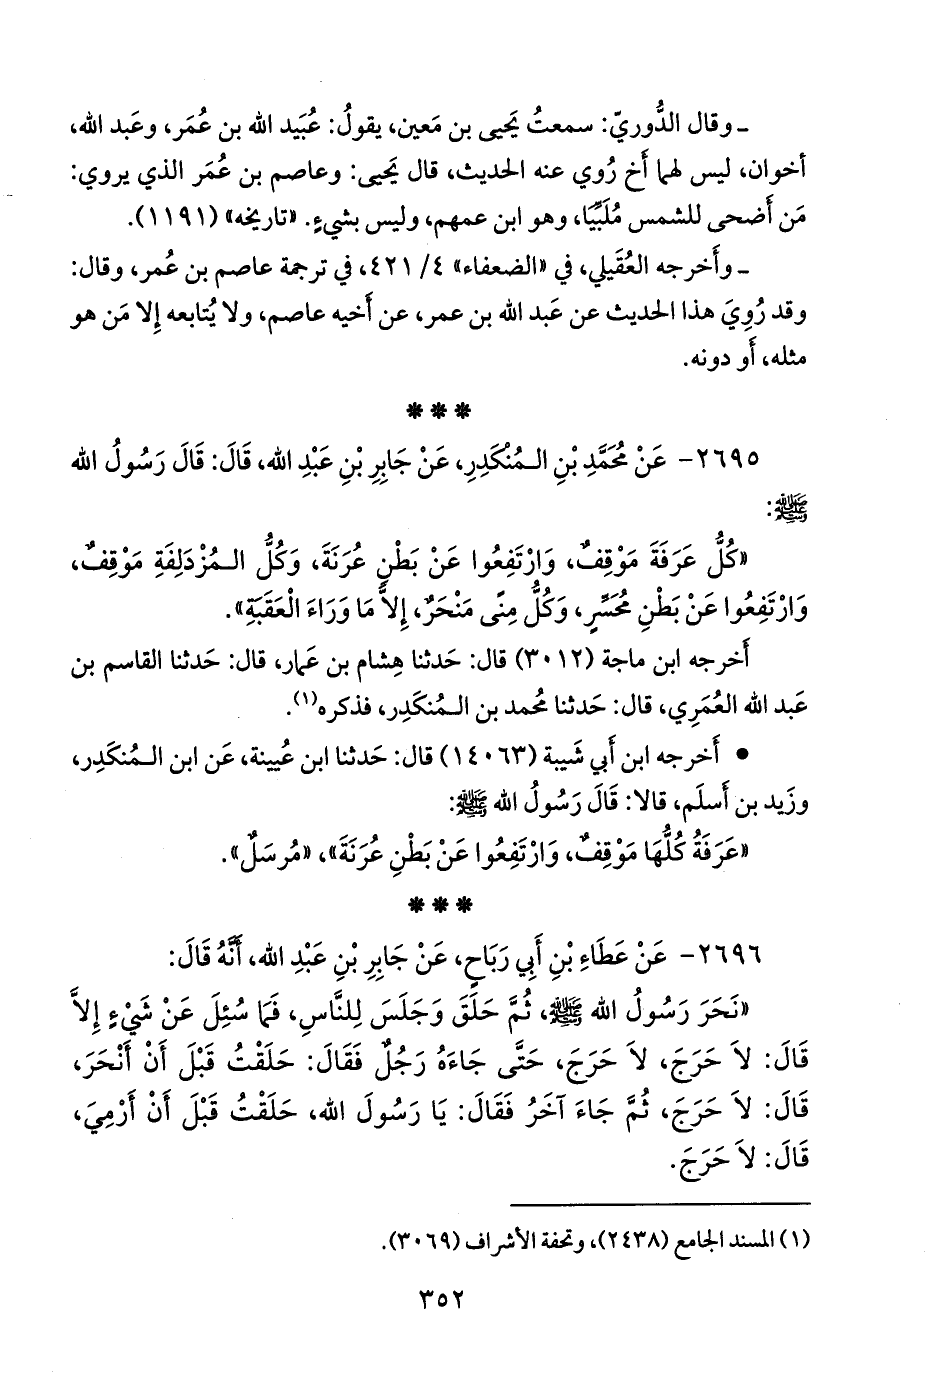 ـ وقال الدُّوريّ: سمعتُ يَحيى بن مَعين، يقولُ: عُبَيد الله بن عُمَر، وعَبد الله،
أخوان، ليس لهما أَخ رُوي عنه الحديث، قال يَحيى: وعاصم بن عُمَر الذي يروي:
مَن أَضحى للشمس مُلَبِّيًا، وهو ابن عمهم، وليس بشيءٍ. «تاريخه» (١١٩١).
ـ وأَخرجه العُقَيلي، في «الضعفاء» ٤/ ٤٢١، في ترجمة عاصم بن عُمر، وقال:
وقد رُوِيَ هذا الحديث عن عَبد الله بن عمر، عن أَخيه عاصم، ولا يُتابعه إِلا مَن هو
مثله، أَو دونه.
***
٢٦٩٥- عَنْ مُحَمَّدِ بْنِ الـمُنْكَدِرِ، عَنْ جَابِرِ بْنِ عَبْدِ الله، قَالَ: قَالَ رَسُولُ الله
ﷺ:
«كُلُّ عَرَفَةَ مَوْقِفٌ، وَارْتَفِعُوا عَنْ بَطْنِ عُرَنَةَ، وَكُلُّ الـمُزْدَلِفَةِ مَوْقِفٌ،
وَارْتَفِعُوا عَنْ بَطْنِ مُحَسِّرٍ، وَكُلُّ مِنًى مَنْحَرٌ، إِلاَّ مَا وَرَاءَ الْعَقَبَةِ».
أَخرجه ابن ماجة (٣٠١٢) قال: حَدثنا هِشام بن عَمار، قال: حَدثنا القاسم بن
عَبد الله العُمَري، قال: حَدثنا مُحمد بن الـمُنكَدِر، فذكره(١).
● أَخرجه ابن أَبي شَيبة (١٤٠٦٣) قال: حَدثنا ابن عُيينة، عَن ابن الـمُنكَدِر،
وزَيد بن أَسلَم، قالا: قَالَ رَسُولُ الله ﷺ:
«عَرَفَةُ كُلُّهَا مَوْقِفٌ، وَارْتَفِعُوا عَنْ بَطْنِ عُرَنَةَ»، «مُرسَلٌ».
***
٢٦٩٦- عَنْ عَطَاءِ بْنِ أَبِي رَبَاحٍ، عَنْ جَابِرِ بْنِ عَبْدِ الله، أَنَّهُ قَالَ:
«نَحَرَ رَسُولُ الله ﷺ، ثُمَّ حَلَقَ وَجَلَسَ لِلنَّاسِ، فَمَا سُئِلَ عَنْ شَيْءٍ إِلاَّ
قَالَ: لاَ حَرَجَ، لاَ حَرَجَ، حَتَّى جَاءَهُ رَجُلٌ فَقَالَ: حَلَقْتُ قَبْلَ أَنْ أَنْحَرَ،
قَالَ: لاَ حَرَجَ، ثُمَّ جَاءَ آخَرُ فَقَالَ: يَا رَسُولَ الله، حَلَقْتُ قَبْلَ أَنْ أَرْمِيَ،
قَالَ: لاَ حَرَجَ.
(١) المسند الجامع (٢٤٣٨)، وتحفة الأشراف (٣٠٦٩).
٣٥٢